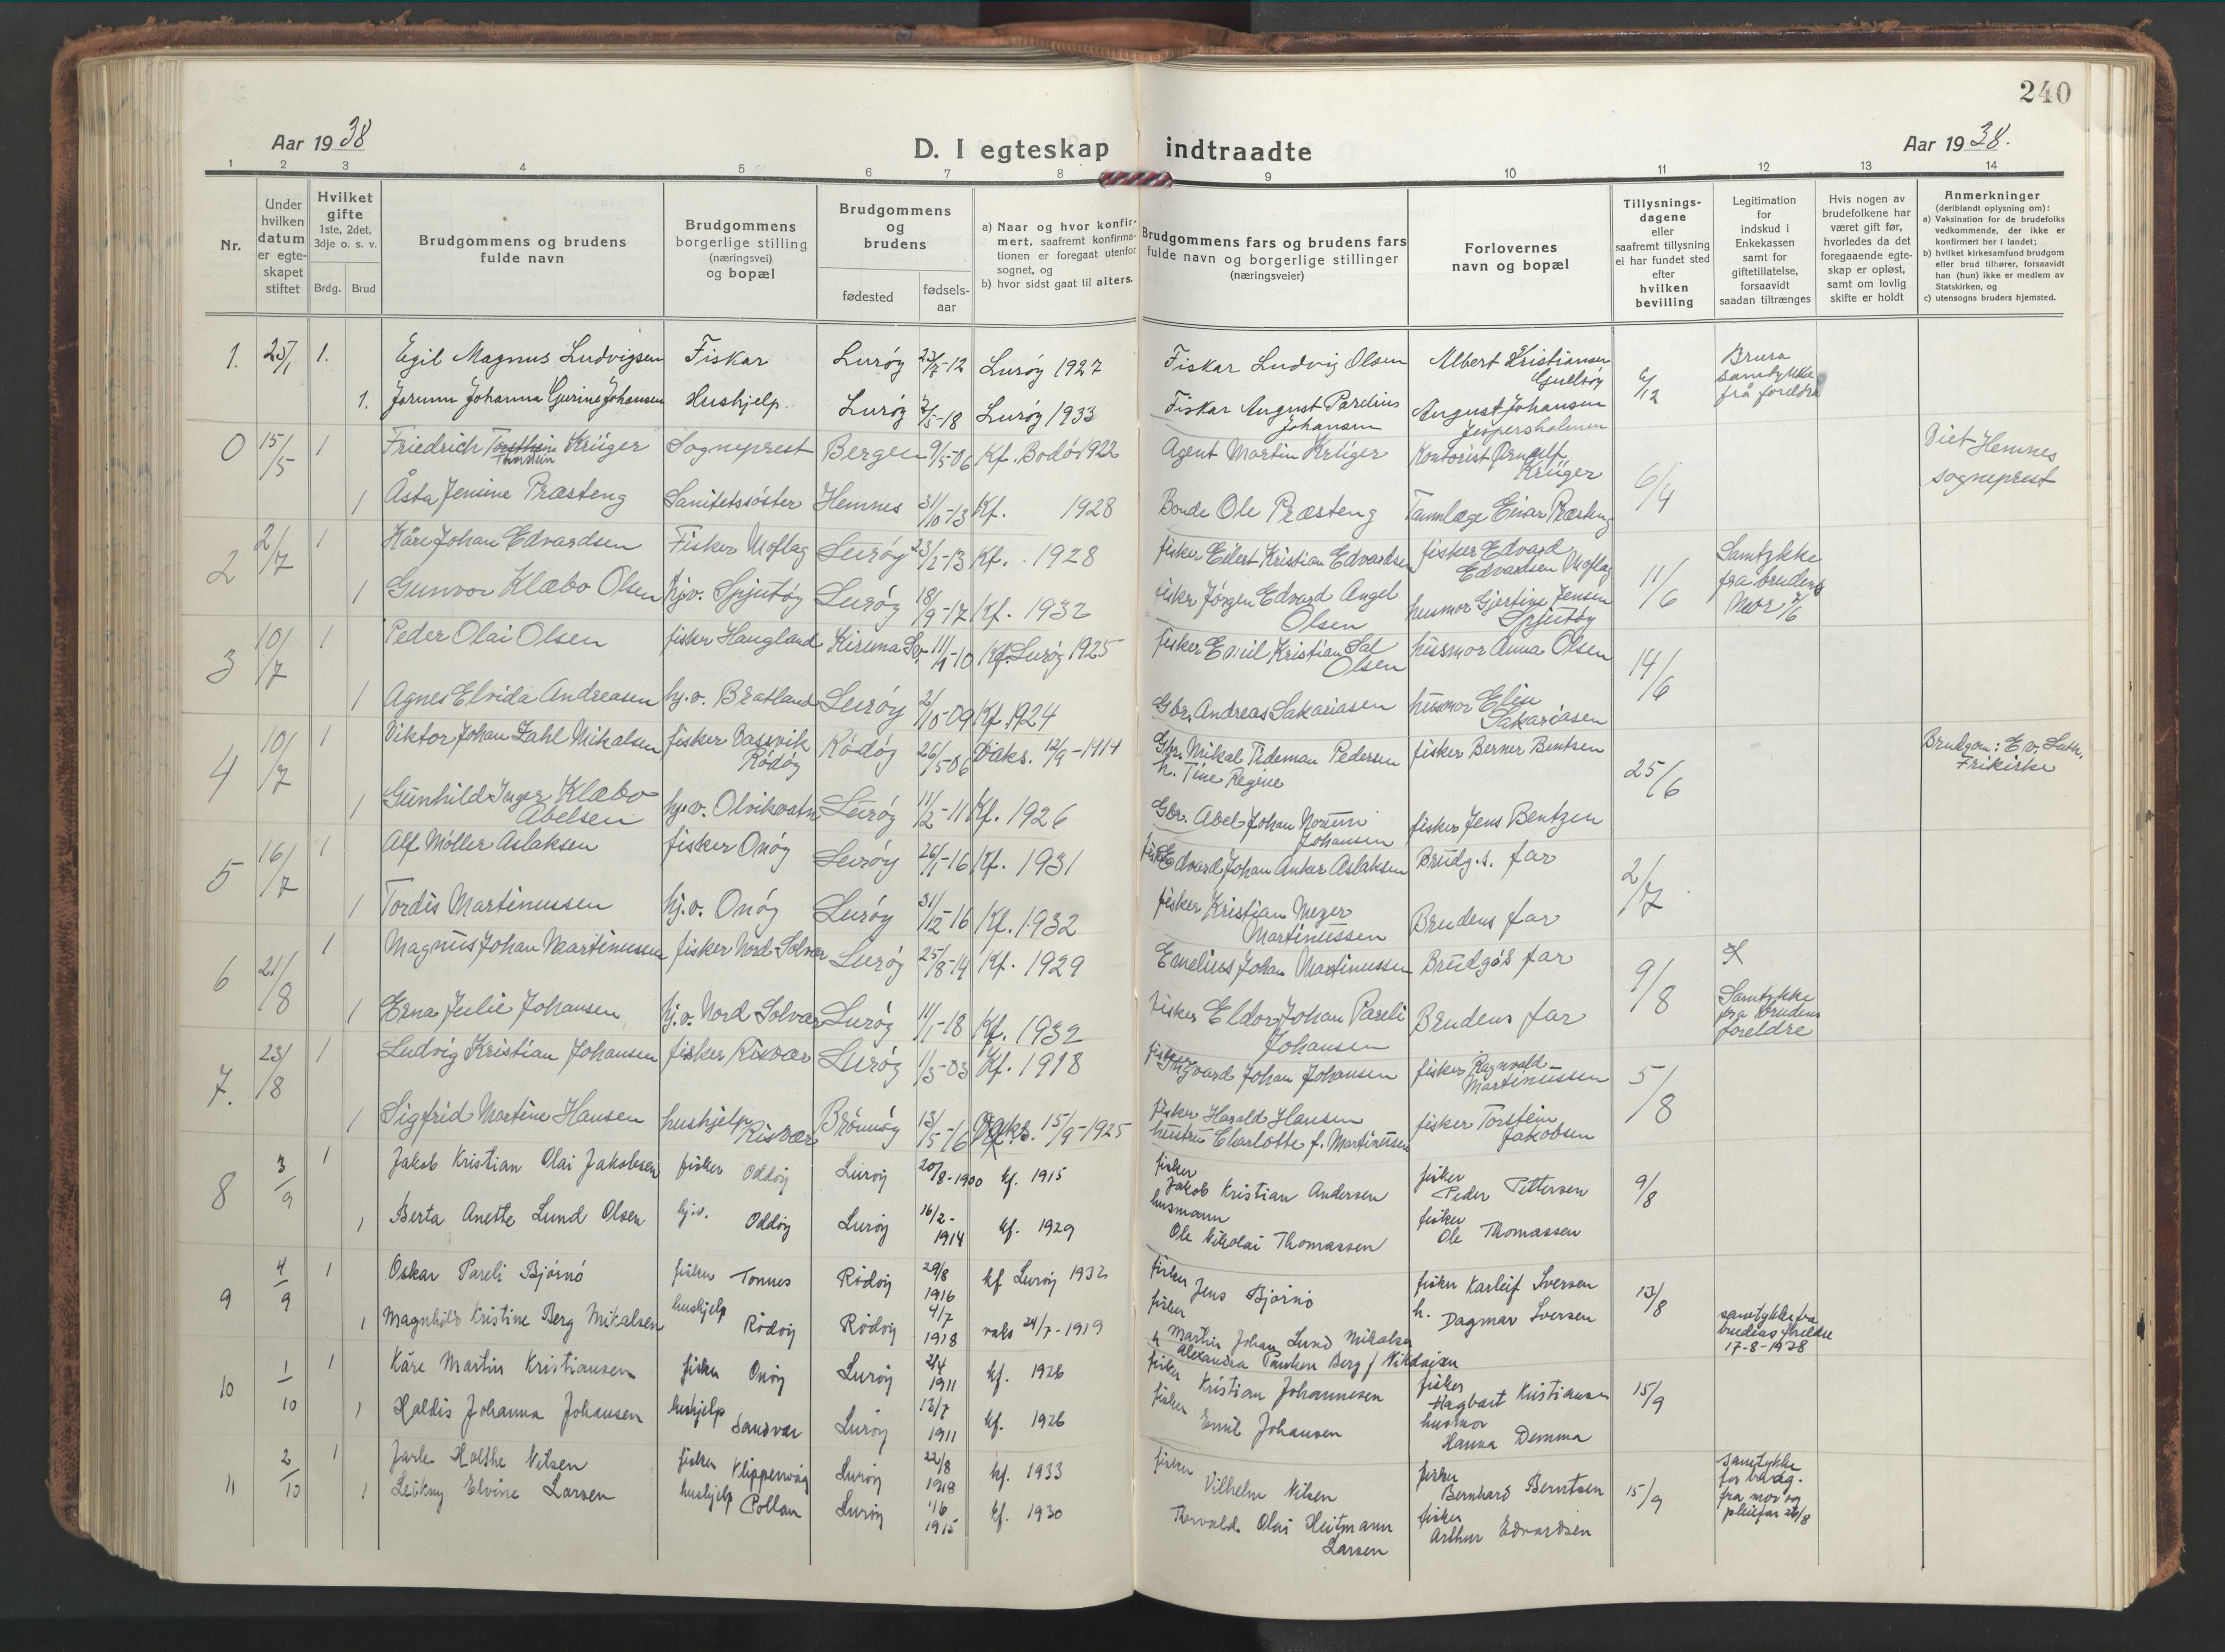 240
Aar 1938
D. I egteskap indtraadte
Aar 1938.
1 2 3 4 5 6 7 8 9 10 11 12 13 14
Nr.
Under hvilken datum er egteskapet stiftet
Hvilket gifte 1ste, 2det, 3dje o. s. v.
Brdg. Brud
Brudgommens og brudens fulde navn
Brudgommens borgerlige stilling (næringsvei) og bopæl
Brudgommens og brudens
fødested
fødsels-aar
a) Naar og hvor konfirmert, saafremt konfirmationen er foregaat utenfor sognet, og
b) hvor sidst gaat til alters.
Brudgommens fars og brudens fars fulde navn og borgerlige stillinger (næringsveier)
Forlovernes navn og bopæl
Tillysningsdagene eller saafremt tillysning ei har fundet sted efter hvilken bevilling
Legitimation for indskud i Enkekassen samt for giftetillatelse, forsaavidt saadan tiltrænges
Hvis nogen av brudefolkene har været gift før, hvorledes da det foregaaende egteskap er opløst, samt om lovlig skifte er holdt
Anmerkninger (deriblandt oplysning om):
a) Vaksination for de brudefolks vedkommende, der ikke er konfirmert her i landet;
b) hvilket kirkesamfund brudgom eller brud tilhører, forsaavidt han (hun) ikke er medlem av Statskirken, og
c) utensogns bruders hjemsted.
1. 25/1 1. Egil Magnus Ludvigsen Fiskar Lurøy 23/7-12 Lurøy 1927 Fiskar Ludvig Olsen Albert Kristiansen 6/12 Brura samtykke frå foreldra
1. Jorunn Johanna Gurine Johansen Hushjelp. Lurøy 7/5-18 Lurøy 1933 Fiskar August Parelius Johansen August Johansen Jespersholmen
0 15/5 1 Friedrich Thorstein Krüger Sogneprest Bergen 9/5-06 Kf. Bodø 1922 Agent Martin Krüger Kontorist Krüger 6/4 Viet Hemnes sogneprest
1 Åsta Jenine Præsteng Sanitetssøster Hemnes 31/10-13 Kf. 1928 Bonde Ole Præsteng Tannlæge Einar Præsteng
2 2/7 1 Kåre Johan Edvardsen Fisker Moflag Lurøy 23/2-13 Kf. 1928 fisker Eilert Kristian Edvardsen fisker Edvard Edvardsen Moflag 11/6 Samtykke fra brudens mor 7/6
1 Gunvor Klæbo Olsen hjv. Spjutøy Lurøy 18/9-17 Kf. 1932 fisker Jørgen Edvard Angel Olsen husmor Gjertine Jensen Spjutøy
3 10/7 1 Peder Olai Olsen fisker Haugland Kiruna Sv. 11/1-10 Kf. Lurøy 1925 fisker Emil Kristian Olsen husmor Anna Olsen 14/6
1 Agnes Elvida Andreasen hj.v. Bratland Lurøy 2/10-09 Kf. 1924 Gbr. Andreas Sakariasen husmor Elin Sakariasen
4 10/7 1 Viktor Johan Zahl Mikalsen fisker Vassvik Rødøy Rødøy 26/5-06 Vaks. 12/9-1914 Gbr. Mikal Tideman Pedersen h. Tine Regine fisker Berner Bentsen 25/6 Brudgom: Ev. Luth. Frikirke
1 Gunhild Inger Klæbo Abelsen hj.v. Olvikvatn Lurøy 11/2-11 Kf. 1926 Gbr. Abel Johan Johansen fisker Jens Bentzen
5 16/7 1 Alf Møller Aslaksen fisker Onøy Lurøy 26/1-16 Kf. 1931 fisker Edvard Johan Anker Aslaksen Brudg.s. far 2/7
1 Tordis Martinussen hj.v. Onøy Lurøy 31/12-16 Kf. 1932 fisker Kristian Meyer Martinussen Brudens far
6 21/8 1 Magnus Johan Martinussen fisker Nord-Solvær Lurøy 25/8-14 Kf. 1929 Emelius Johan Martinussen Brudgøs far 9/8
1 Erna Julie Johansen hj.v. Nord Solvær Lurøy 11/1-18 Kf. 1932 fisker Eldor Johan Pareli Johansen Brudens far Samtykke fra brudens foreldre
7. 23/8 1 Ludvig Kristian Johansen fisker Risvær Lurøy 1/3-03 Kf. 1918 fisker Johan Johansen fisker Ragnvald Martinussen 5/8
1 Sigfrid Martine Hansen hushjelp Risvær Brønnøy 13/5-16 Vaks. 15/9-1925 fisker Harald Hansen hustru Charlotte f. Martinusen fisker Torstein Jakobsen
8 3/9 1 Jakob Kristian Olai Jakobsen fisker Oddøy Lurøy 20/8-1900 kf. 1915 fisker Jakob Kristian Andersen fisker Peder Pettersen 9/8
1 Berta Anette Lund Olsen hj.v. Oddøy Lurøy 16/2-1914 kf. 1929 husmann Ole Nikolai Thomassen fisker Ole Thomassen
9 4/9 1 Oskar Pareli Bjørnø fisker Tonnes Rødøy 29/8 1916 kf Lurøy 1932 fisker Jens Bjørnø fisker Karleif Iversen 13/8
1 Magnhild Kristine Berg Mikalsen hushjelp Rødøy Rødøy 4/7 1918 vaks 24/7-1919 fisker Martin Johan Lund Mikalsen h Alexandra Berg f Nikolaisen h. Dagmar Iversen samtykke fra brudens foreldre 17-8-1938
10 1/10 1 Kåre Martin Kristiansen fisker Onøy Lurøy 2/4 1911 kf. 1926 fisker Kristian Johannesen fisker Hagbart Kristiansen 15/9
1 Haldis Johanna Johansen hushjelp Sandvær Lurøy 13/7 1911 kf. 1926 fisker Emil Johansen husmor Hanna Demma
11 2/10 1 Jarle Holthe Nilsen fisker Klippenvåg Lurøy 22/8 1918 kf. 1933 fisker Vilhelm Nilsen fisker Bernhard Berntsen 15/9 samtykke for brudg. fra mor og pleiefar 26/8
1 Leikny Elvine Larsen hushjelp Pollan Lurøy 1/6 1915 kf. 1930 Thorvald Olai Heitmann Larsen fisker Arthur Edvardsen